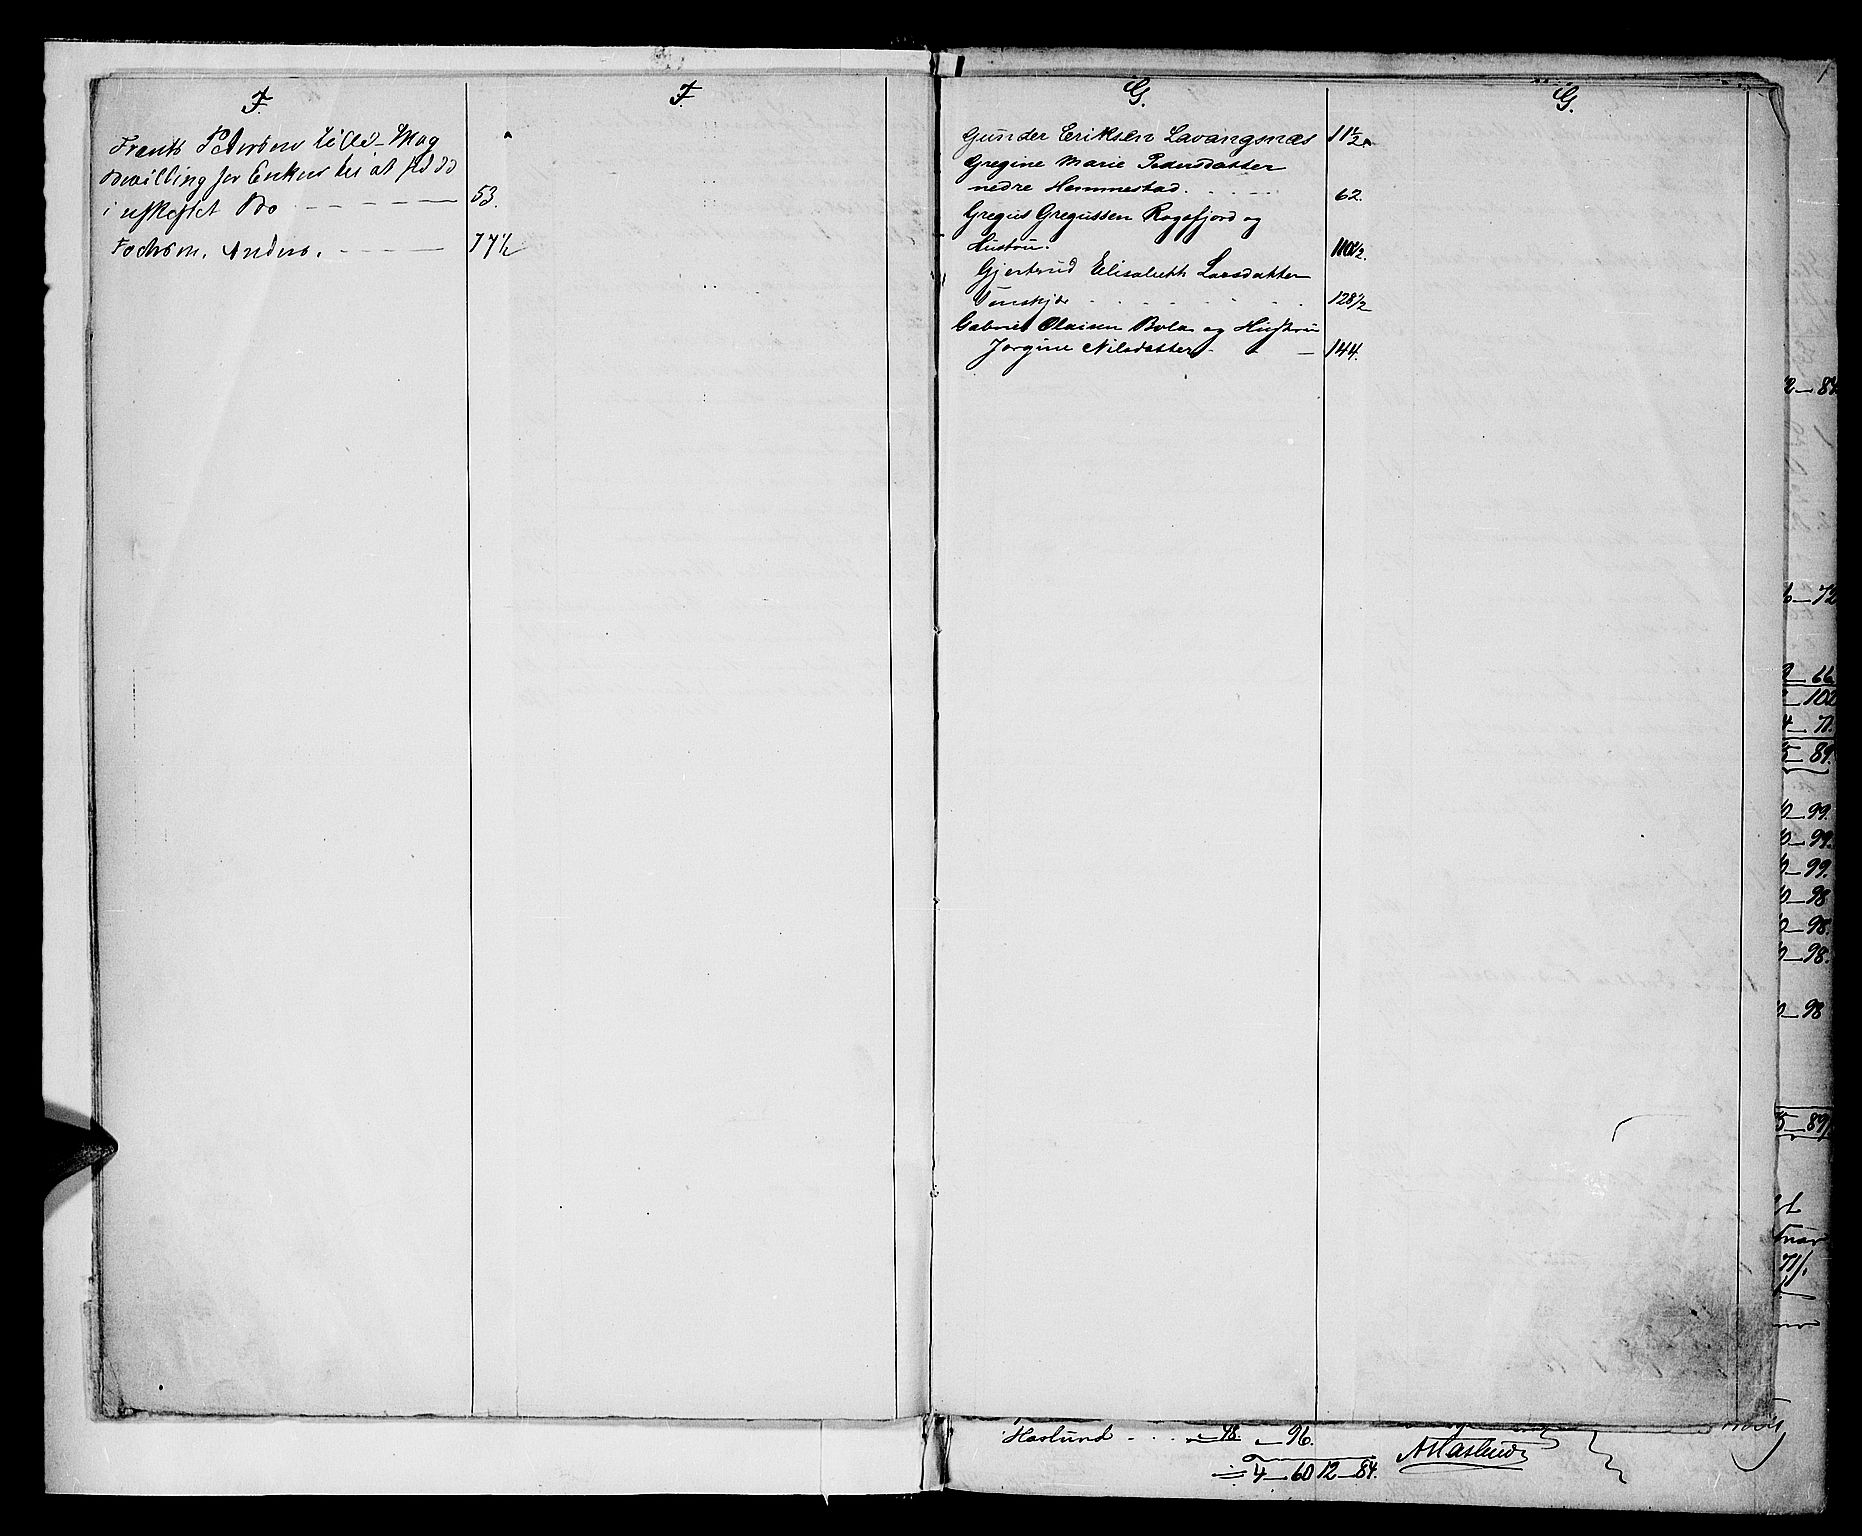 F.
Frants Pedersens
Bevilling for Enken til at sidde
i uskiftet Bo 53.
Fochsen, Anders. 77½
F.
G.
Gunder Eriksen Lavangsnæs 11½
Gregine Marie Pedersdatter
nedre Hemmestad. 62.
Gregus Gregussen Rogsfjord og
Hustru.
Gjertrud Elisabeth Larsdatter
128½
Gabriel Olaisen Bola og Hustru
Jorgine Nilsdatter 144.
G.
1
2 — 84
72
66
102
4 — 71.
5 — 89.
0 — 99.
0 — 99.
0 — 99.
0 — 98
0 — 98.
0 — 98.
0 — 98
5 — 89
71/1
Haslund 48. 96.
4 — 60 12 — 84.
AHaslund